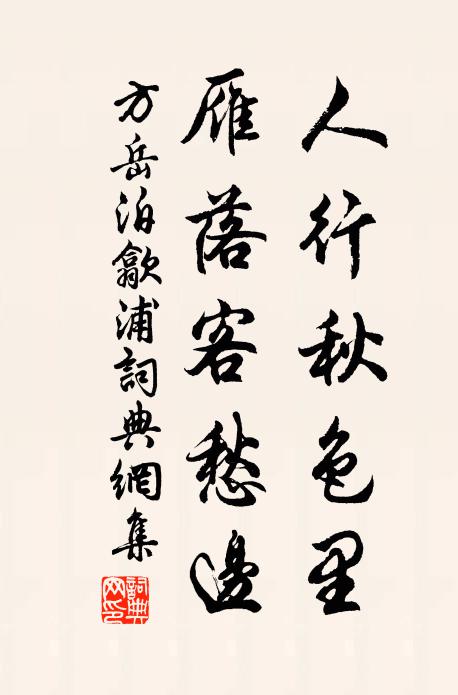 人行秋色里
雁落客愁邊
方岳泊歙浦詞典網集
詞典網印